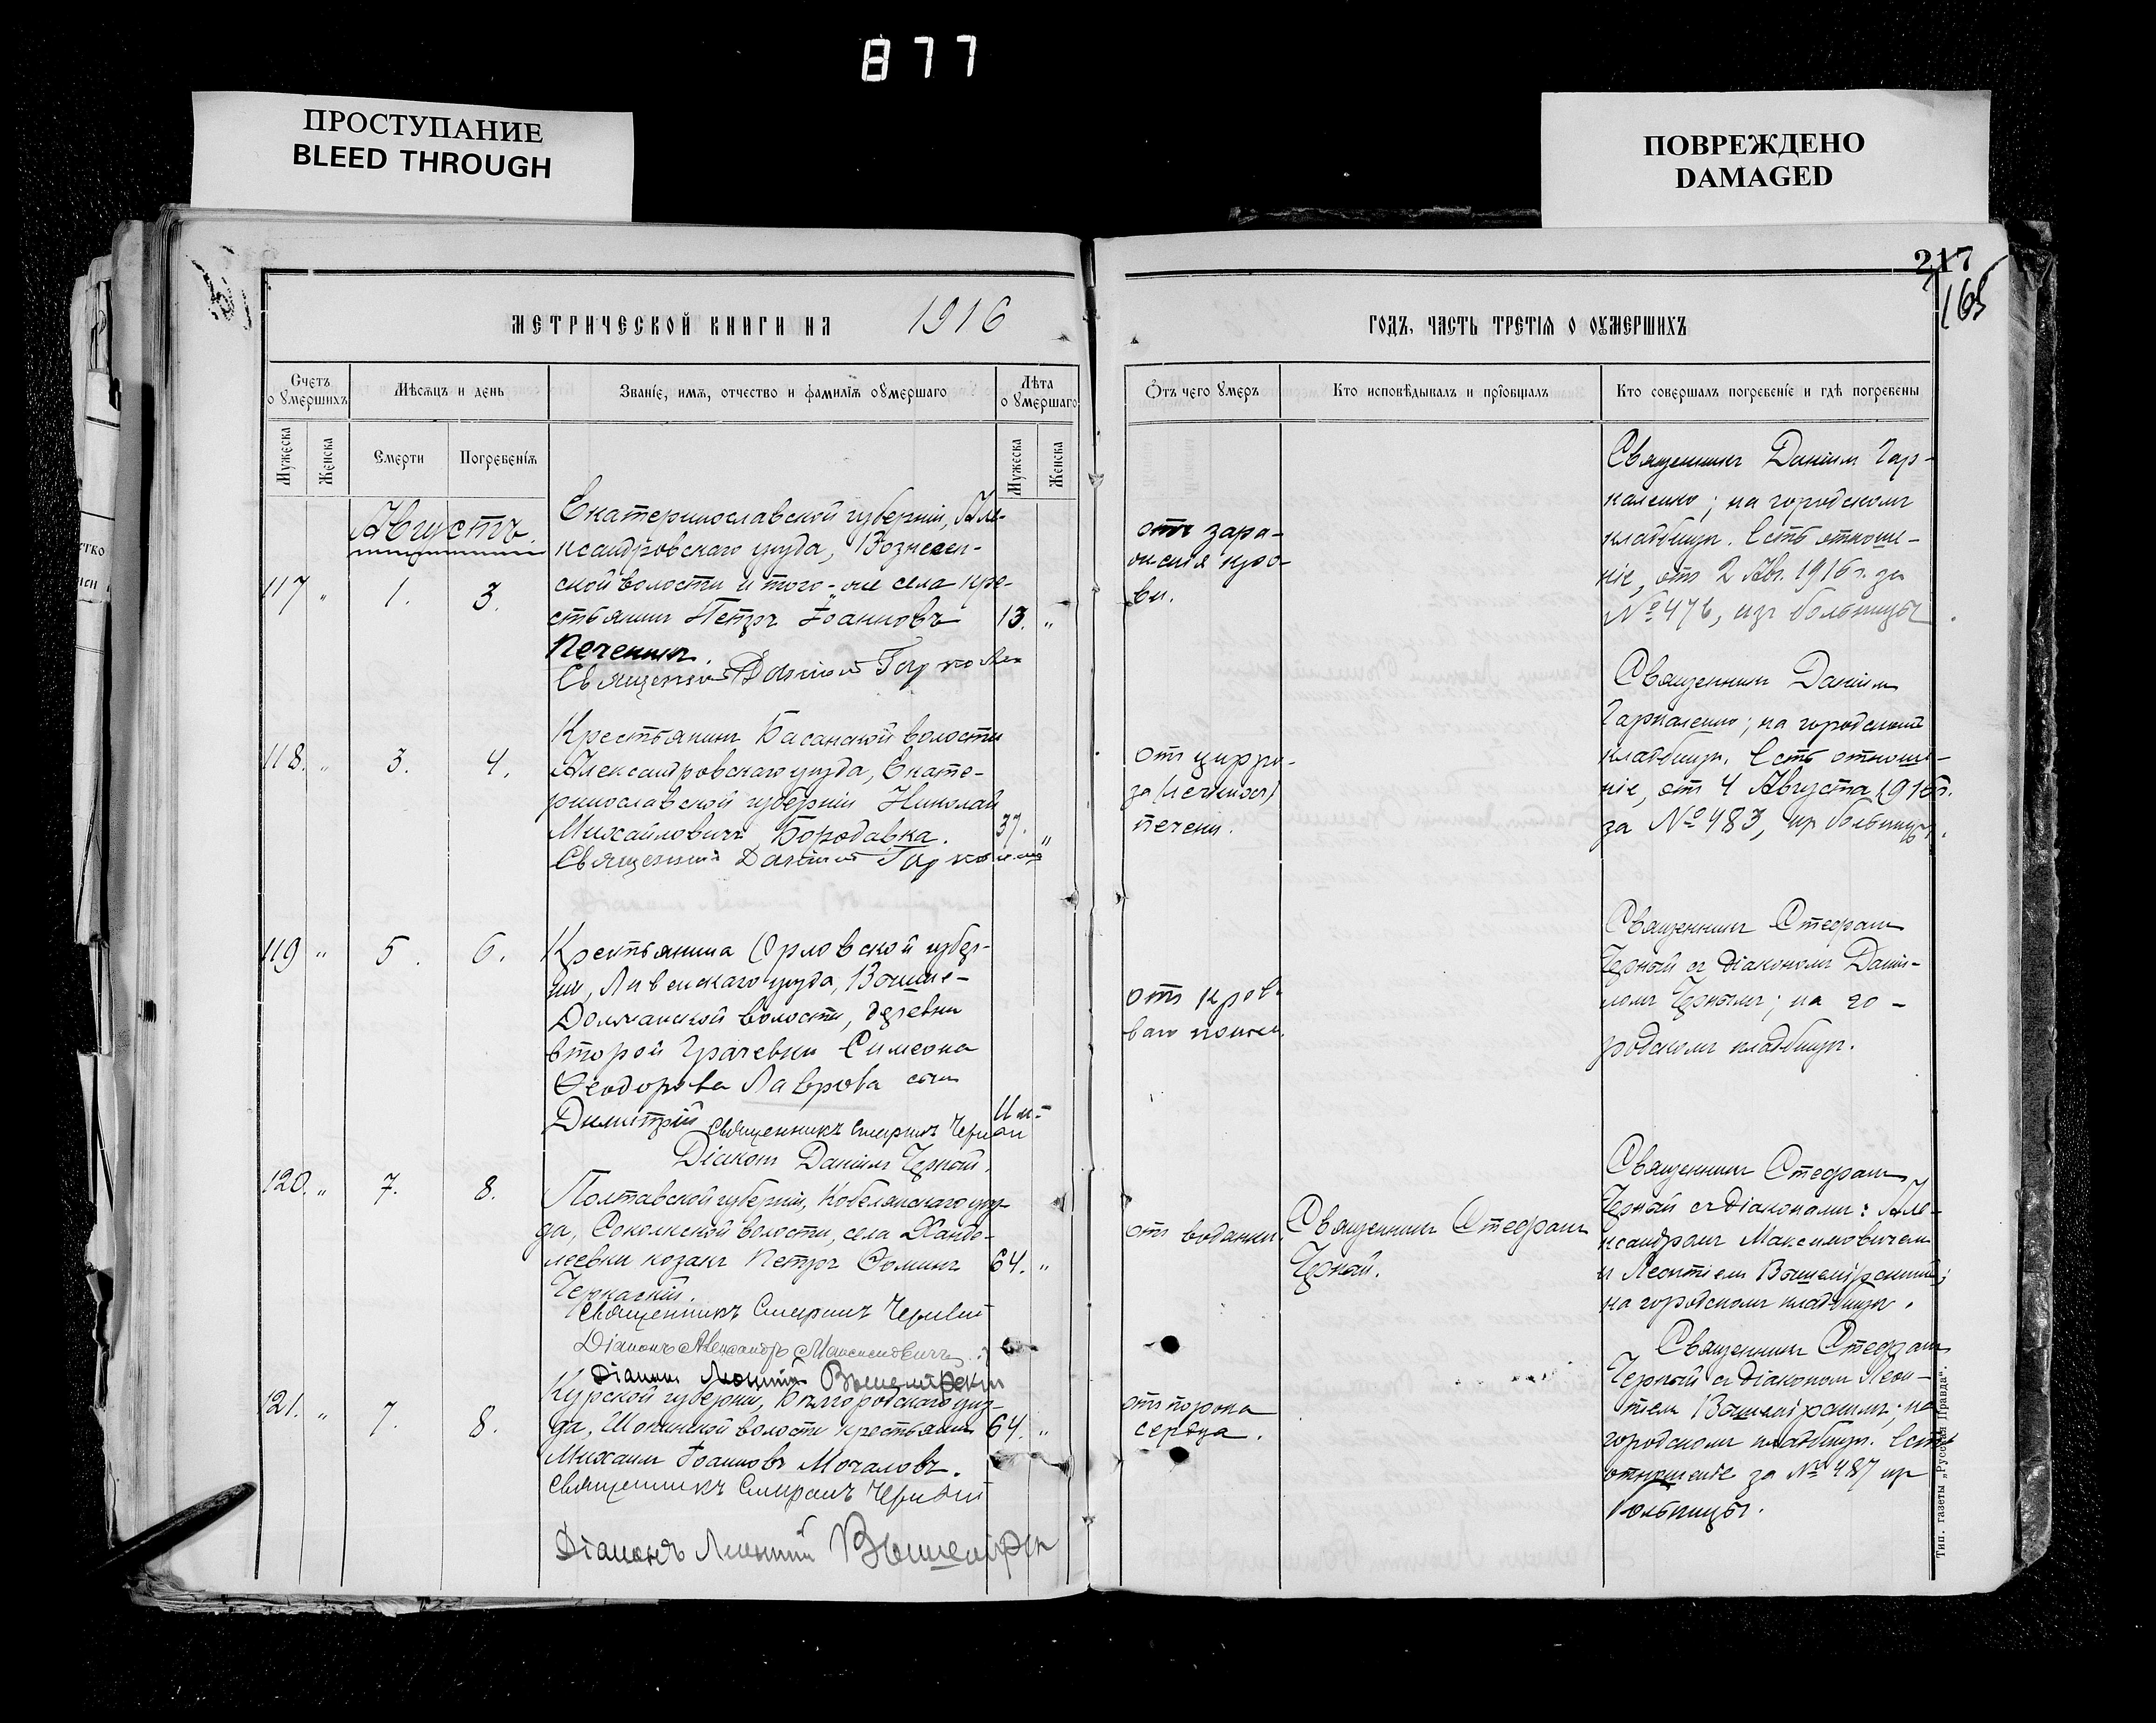 877
ПРОСТУПАНИЕ
BLEED THROUGH
ПОВРЕЖДЕНО
DAMAGED
217
165
МЕТРИЧЕСКОЙ КНИГИ НА 1916
ГОДЪ, ЧАСТЬ ТРЕТІѦ О ОУМЕРШИХЪ
Счетъ о умершихъ
Мѣсѧцъ и день
Званіе, имѧ, отчество и фамиліѧ оумершаго
Лѣта о умершаго
Мужеска
Женска
Смерти
Погребеніѧ
Мужеска
Женска
Ѿтъ чего умеръ
Кто исповѣдывалъ и пріобщалъ
Кто совершалъ погребеніе и гдѣ погребены
Августъ.
117 " 1. 3.
Екатеринославской губерніи, Але-
ксандровскаго уѣзда, Вознесен-
ской волости и того-же села кре-
стьянинъ Петръ Іоанновъ 13. "
Печенинъ.
Священникъ Даніилъ
отъ зара-
женія кро-
ви.
Священникъ Даніилъ Гар-
каленко; на городскомъ
кладбищѣ. Есть отноше-
ніе, отъ 2 Авг. 1916 г. за
№ 476, изъ больницы.
118. " 3. 4.
Крестьянинъ Басанской волости
Александровскаго уѣзда, Екате-
ринославской губерніи Николай
Михайловичъ Бородавка. 37. "
Священникъ Даніилъ
отъ цирро-
за
печени.
Священникъ Даніилъ
Гаркаленко; на городскомъ
кладбищѣ. Есть отноше-
ніе, отъ 4 Августа 1916 г.
за № 483, изъ больницы.
119 " 5. 6.
Крестьянина Орловской губер-
ніи, Ливенскаго уѣзда, Вышне-
Должанской волости, деревни
второй Грачевки Симеона
Ѳеодорова Лаврова сынъ
Димитрій 11 м.
Священникъ Стефанъ Черный
Діаконъ Даніилъ Черный.
отъ крова-
ваго поноса.
Священникъ Стефанъ
Черный съ діакономъ Дани-
ломъ Чернымъ; на го-
родскомъ кладбищѣ.
120. " 7. 8.
Полтавской губерніи, Кобелякскаго уѣз-
да, Соколкской волости, села
козакъ Петръ Ѳоминъ 64. "
Черкаскій.
Священникъ Стефанъ Черный
Діаконъ Александръ Максимовичъ
Діаконъ Леонтій Вышемірскій
отъ водянки.
Священникъ Стефанъ
Черный.
Священникъ Стефанъ
Черный съ діаконами: Але-
ксандромъ Максимовичемъ
и Леонтіемъ Вышемірскимъ;
на городскомъ кладбищѣ.
121. " 7. 8.
Курской губерніи, Бѣлгородскаго уѣз-
да, волости крестьянинъ 64. "
Михаилъ Іоанновъ Мочаловъ.
Священникъ Стефанъ Черный
Діаконъ Леонтій
отъ порока
сердца.
Священникъ Стефанъ
Черный съ діакономъ Леон-
тіемъ Вышемірскимъ; на
городскомъ кладбищѣ. Есть
отношеніе за № 487 изъ
больницы.
Тип. газеты „Русская Правда".